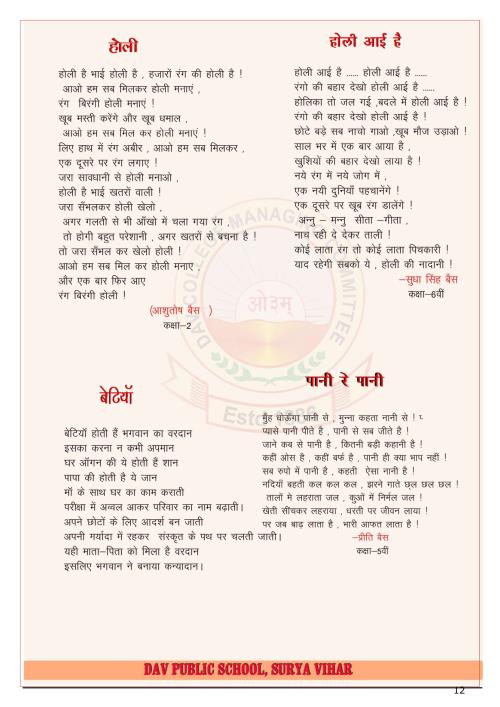 होली
होली है भाई होली है , हजारों रंग की होली है !
आओ हम सब मिलकर होली मनाएं ,
रंग बिरंगी होली मनाएं !
खूब मस्ती करेंगे और खूब धमाल ,
आओ हम सब मिल कर होली मनाएं !
लिए हाथ में रंग अबीर , आओ हम सब मिलकर ,
एक दूसरे पर रंग लगाए !
जरा सावधानी से होली मनाओ ,
होली है भाई खतरों वाली !
जरा सँभलकर होली खेलो ,
अगर गलती से भी आँखो में चला गया रंग ,
तो होगी बहुत परेशानी , अगर खतरों से बचना है !
तो जरा सँभल कर खेलो होली !
आओ हम सब मिल कर होली मनाए ,
और एक बार फिर आए
रंग बिरंगी होली !
(आशुतोष बैस )
कक्षा–2
होली आई है
होली आई है ...... होली आई है ......
रंगो की बहार देखो होली आई है ......
होलिका तो जल गई ,बदले में होली आई है !
रंगो की बहार देखो होली आई है !
छोटे बड़े सब नाचो गाओ ,खूब मौज उड़ाओ !
साल भर में एक बार आया है ,
खुशियों की बहार देखो लाया है !
नये रंग में नये जोग में ,
एक नयी दुनियाँ पहचानेंगे !
एक दूसरे पर खूब रंग डालेंगे !
अन्नु – मन्नु सीता –गीता ,
नाच रही दे देकर ताली !
कोई लाता रंग तो कोई लाता पिचकारी !
याद रहेगी सबको ये , होली की नादानी !
–सुधा सिंह बैस
कक्षा–6वीं
बेटियाँ
बेटियाँ होती हैं भगवान का वरदान
इसका करना न कभी अपमान
घर आँगन की ये होती हैं शान
पापा की होती है ये जान
माँ के साथ घर का काम कराती
परीक्षा में अव्वल आकर परिवार का नाम बढ़ाती।
अपने छोटों के लिए आदर्श बन जाती
अपनी मर्यादा में रहकर संस्कृत के पथ पर चलती जाती।
यही माता–पिता को मिला है वरदान
इसलिए भगवान ने बनाया कन्यादान।
पानी रे पानी
मुँह धोऊँगा पानी से , मुन्ना कहता नानी से !
प्यासे पानी पीते है , पानी से सब जीते है !
जाने कब से पानी है , कितनी बड़ी कहानी है !
कहीं ओस है , कहीं बर्फ है , पानी ही क्या भाप नहीं !
सब रुपो में पानी है , कहती ऐसा नानी है !
नदियाँ बहती कल कल कल , झरने गाते छल छल छल !
तालों मे लहराता जल , कुओं में निर्मल जल !
खेती सींचकर लहराया , धरती पर जीवन लाया !
पर जब बाढ़ लाता है , भारी आफत लाता है !
–प्रीति बैस
कक्षा–5वीं
DAV COLLEGE MANAGING COMMITTEE
ओ३म्
Estd 1886
DAV PUBLIC SCHOOL, SURYA VIHAR
12